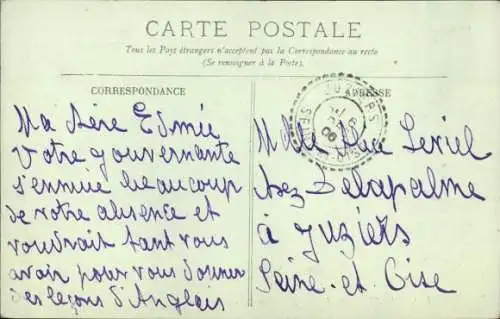 CARTE POSTALE
Tous les Pays étrangers n'acceptent pas la Correspondance au recto
(Se renseigner à la Poste).
CORRESPONDANCE
ADRESSE
Ma Esmée
Votre gouvernante
s'ennuie beaucoup
de votre absence et
voudrait tant vous
avoir pour vous donner
des leçons d'Anglais
Mlle
chez Delapalme
à Juziers
Seine-et-Oise